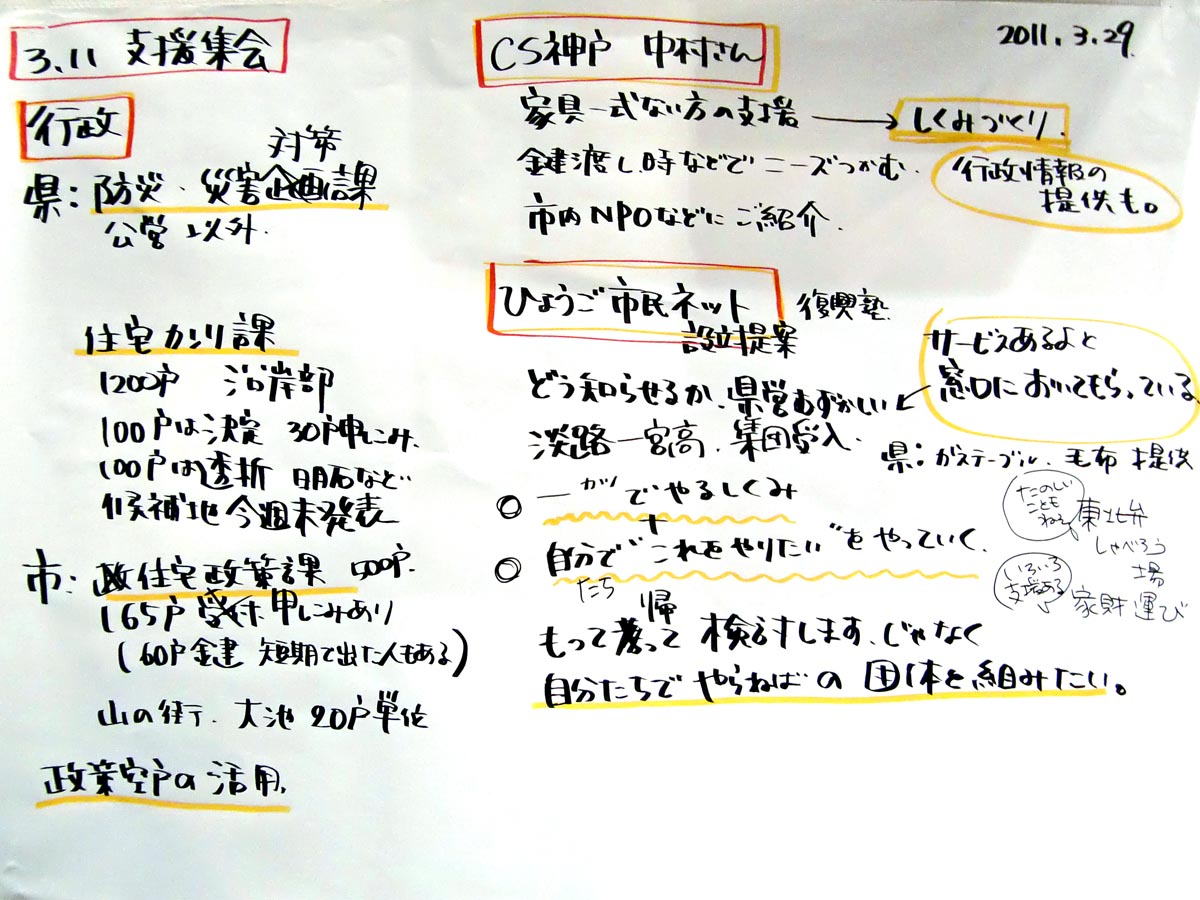 3.11 支援集会
行政
県: 防災・災害企画課
対策
公営以外.
住宅カンリ課
1200戸 沿岸部
100戸は決定 30戸申しこみ.
100戸は透析 明石など
候補地今週末発表
市: 住宅政策課 500戸.
165戸 受付. 申しこみあり
(60戸金建 短期で出た人もある)
山の街. 大池 20戸単位
政策空戸の活用.
2011.3.29.
CS神戸 中村さん
家具一式ない方の支援 → しくみづくり.
鍵渡し時などでニーズつかむ.
行政情報の
提供も。
市内NPOなどにご紹介.
ひょうご市民ネット 復興塾.
設立提案
サービスあるよと
窓口においてもらっている.
どう知らせるか. 県営むずかしい ←
淡路一宮高. 集団受入.
県: ガステーブル. 毛布 提供
○ 一カ月でやるしくみ
+
○ 自分で“これをやりたい”をやっていく.
たち
たのしい
ことも
ねぇ
東北弁
しゃべろう
場
いろいろ
支援ある
家財運び
もって帰って 検討します、じゃなく
自分たちで やらねばの 団体を組みたい。